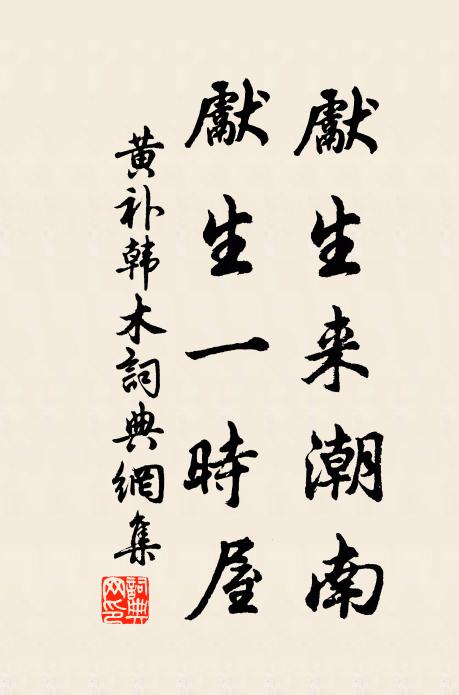 獻生来潮南
獻生一時屋
黄补韩木詞典網集
詞典网印